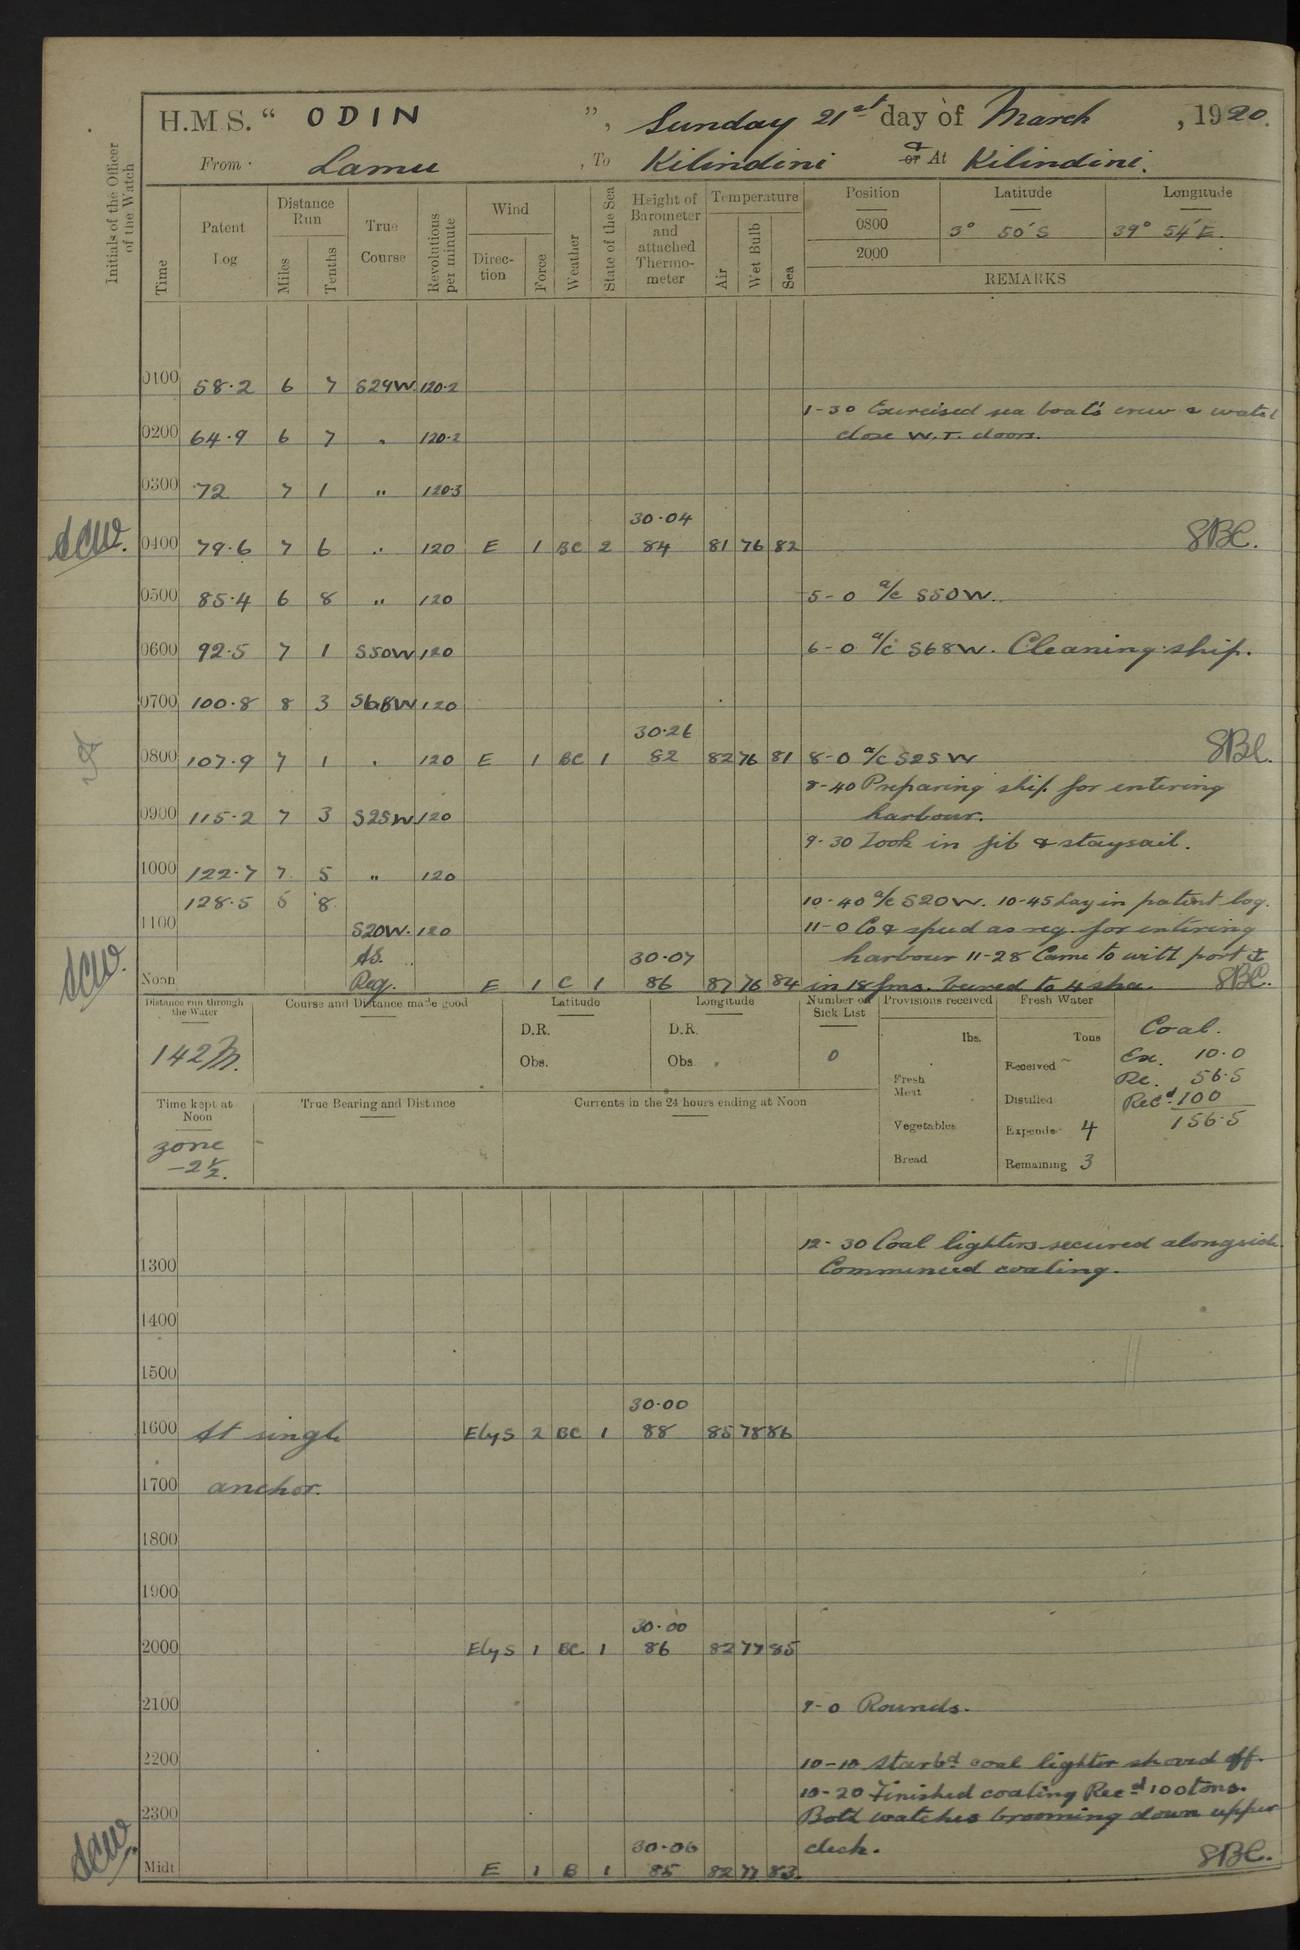 H.M.S. “ ODIN ”, Sunday 21st day of March, 1920.
From Lamu, To Kilindini or & At Kilindini.
Initials of the Officer of the Watch
Time
Patent Log
Distance Run
Miles
Tenths
True Course
Revolutions per minute
Wind
Direction
Force
Weather
State of the Sea
Height of Barometer and attached Thermometer
Temperature
Air
Wet Bulb
Sea
Position Latitude Longitude
0800 3° 50' S 39° 54' E.
2000
REMARKS
0100 58.2 6 7 S29W. 120.2
1-30 Exercised sea boat's crew & watch
0200 64.9 6 7 " 120.2 close W.T. doors.
0300 72 7 1 " 120.3
30.04
SCW. 0400 79.6 7 6 " 120 E 1 BC 2 84 81 76 82 SBC.
0500 85.4 6 8 " 120 5-0 a/c S50W.
0600 92.5 7 1 S50W 120 6-0 a/c S68W. Cleaning ship.
0700 100.8 8 3 S68W 120
30.26
0800 107.9 7 1 " 120 E 1 BC 1 82 82 76 81 8-0 a/c S25W SBC.
8-40 Preparing ship for entering
0900 115.2 7 3 S25W 120 harbour.
9-30 Took in jib & staysail.
1000 122.7 7 5 " 120
128.5 5 8 10-40 a/c S20W. 10-45 Lay in patent log.
1100 S20W. 120 11-0 Co & speed as req. for entering
As 30.07 harbour 11-28 Came to with port
Noon Req. E 1 C 1 86 87 76 84 in 18 fms. Veered to 4 sha. SBC.
SCW.
Distance run through the Water
142 M.
Course and Distance made good
Latitude
D.R.
Obs.
Longitude
D.R.
Obs.
Number on Sick List
0
Provisions received
lbs.
Fresh Meat
Vegetables
Bread
Fresh Water
Tons
Received ~
Distilled
Expended 4
Remaining 3
Coal.
Ex. 10.0
Re. 56.5
Recd. 100
156.5
Time kept at Noon
zone
-2½.
True Bearing and Distance
Currents in the 24 hours ending at Noon
12-30 Coal lighters secured alongside.
1300 Commenced coating.
1400
1500
30.00
1600 At single Elys 2 BC 1 88 85 78 86
1700 anchor.
1800
1900
30.00
2000 Elys 1 BC 1 86 82 77 85
2100 9-0 Rounds.
2200 10-10 Starbd coal lighter shoved off.
10-20 Finished coaling Recd 100 tons.
2300 Both watches brooming down upper
30.06 deck.
SCW. Midt E 1 B 1 85 82 77 83. SBC.